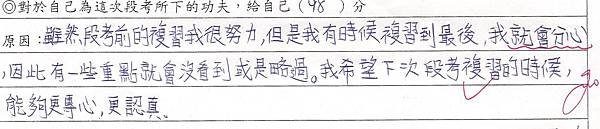 ◎對於自己為這次段考所下的功夫,給自己(98)分
原因:雖然段考前的複習我很努力,但是我有時候複習到最後,我就會分心
,因此有一些重點就會沒看到或是略過。我希望下次段考複習的時候,
能夠更專心,更認真